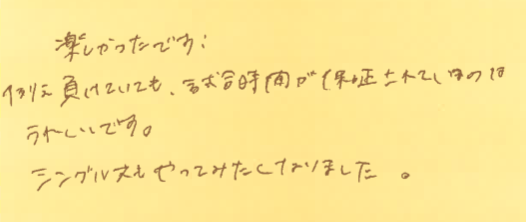 楽しかったです！
例え負けていても、試合時間が保証されているのは
うれしいです。
シングルスもやってみたくなりました。